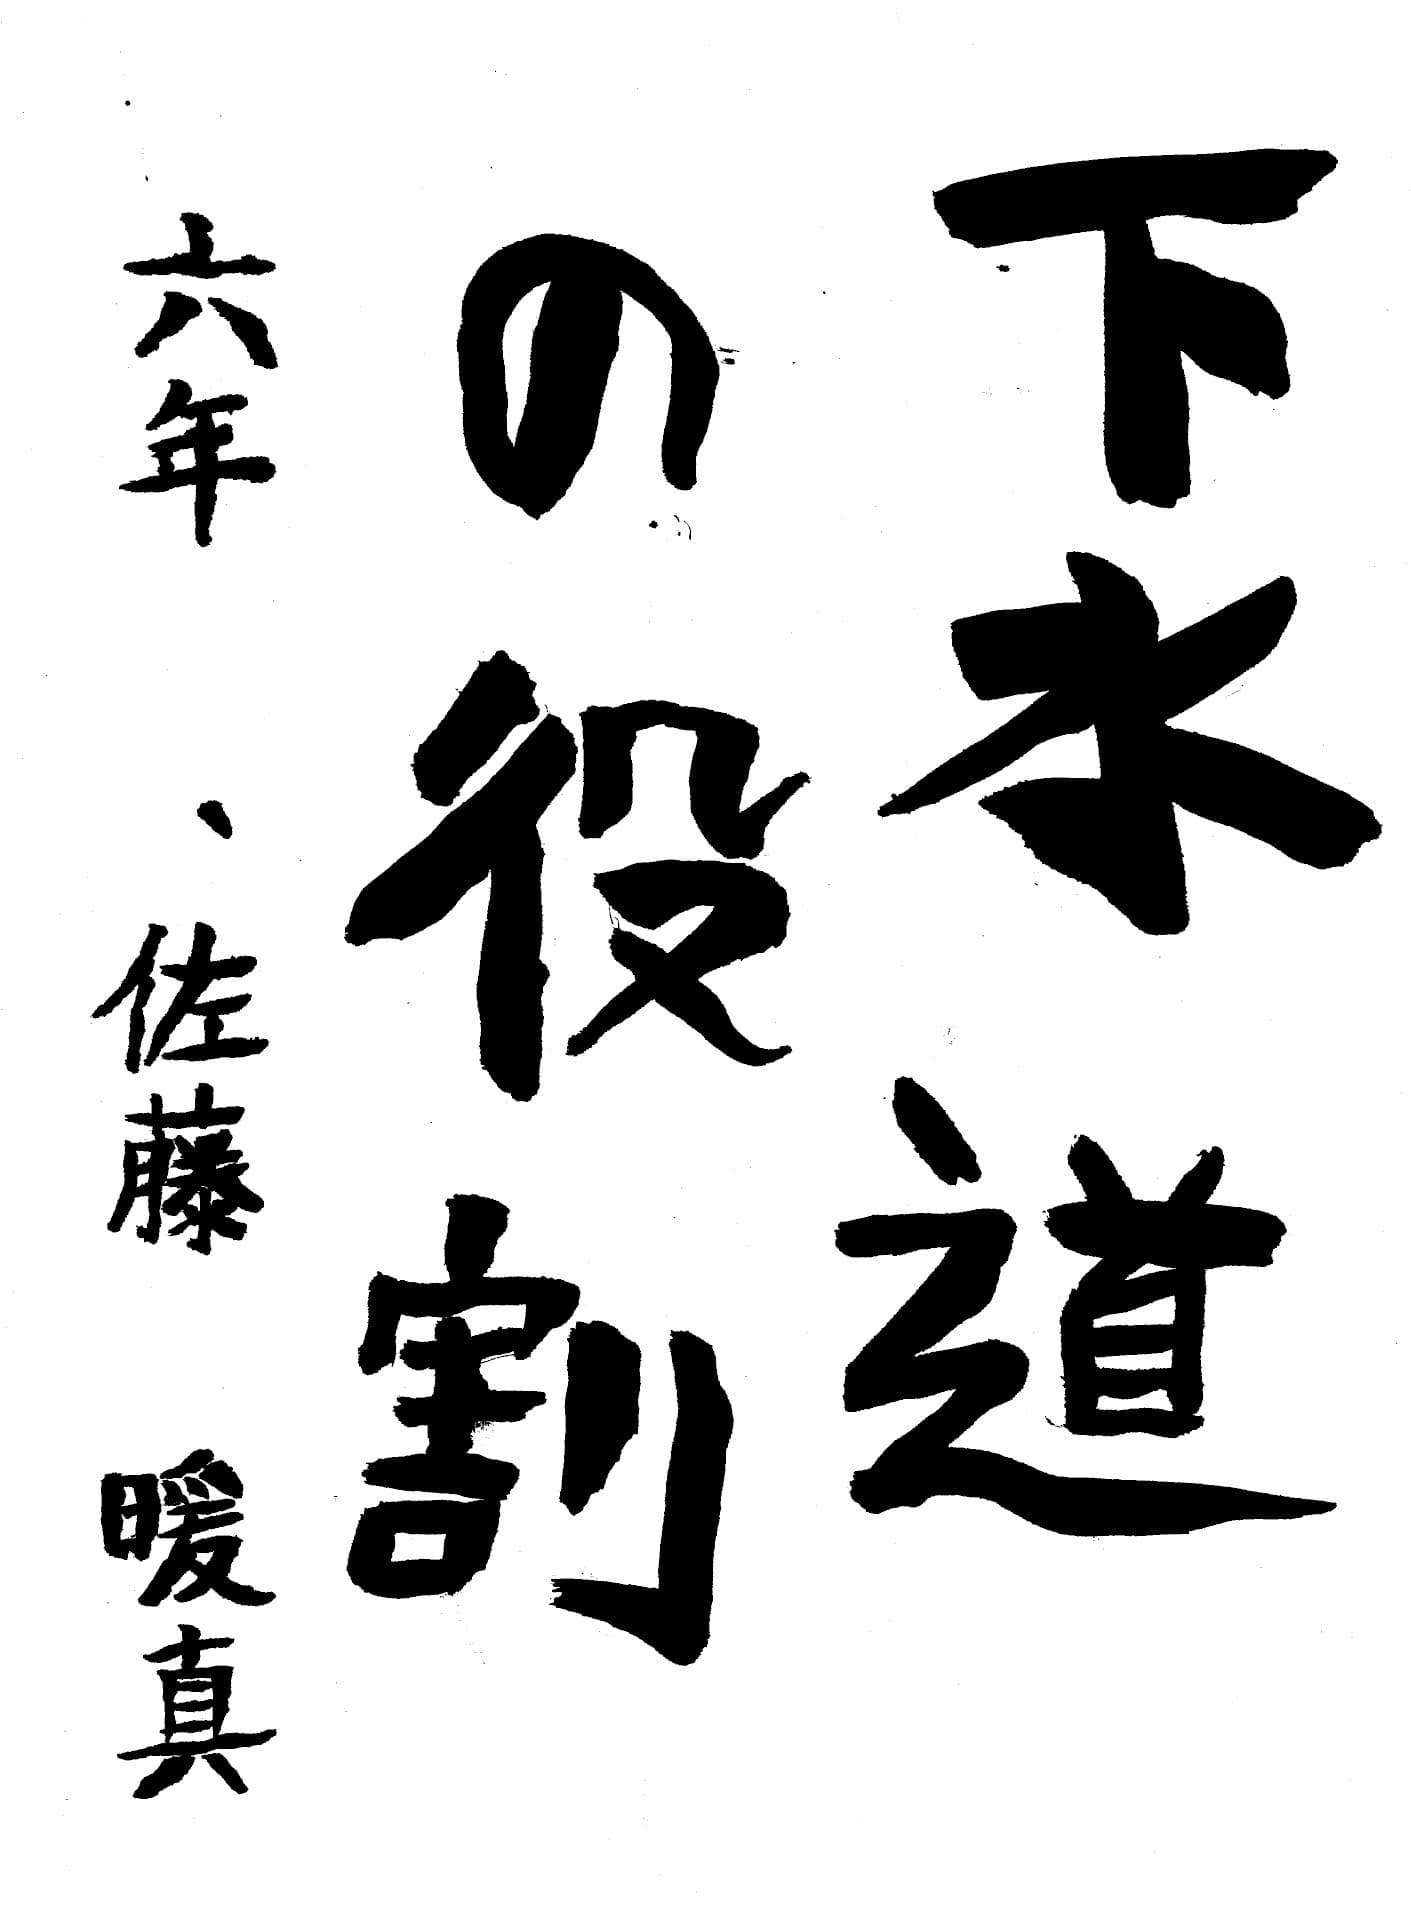 下水道
の役割
六年 佐藤 暖真